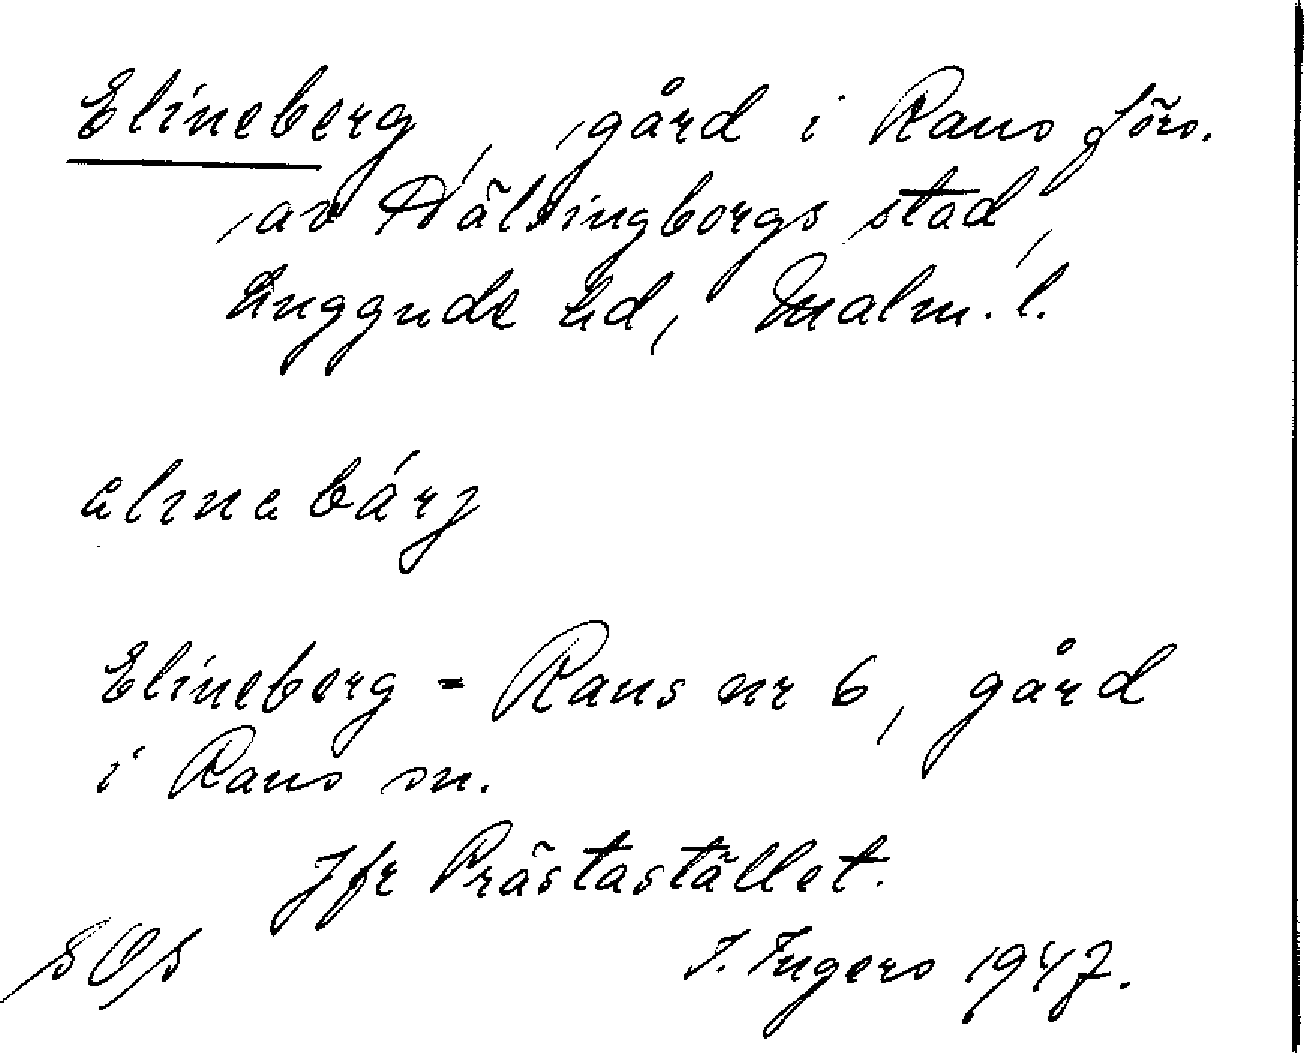 Elineberg, gård i Raus förs.
av Hälsingborgs stad,
Luggude hd, Malm. l.
elinabárj
Elineberg = Raus nr 6, gård
i Raus sn.
Jfr Prästastället.
SOS
I. Ingers 1947.